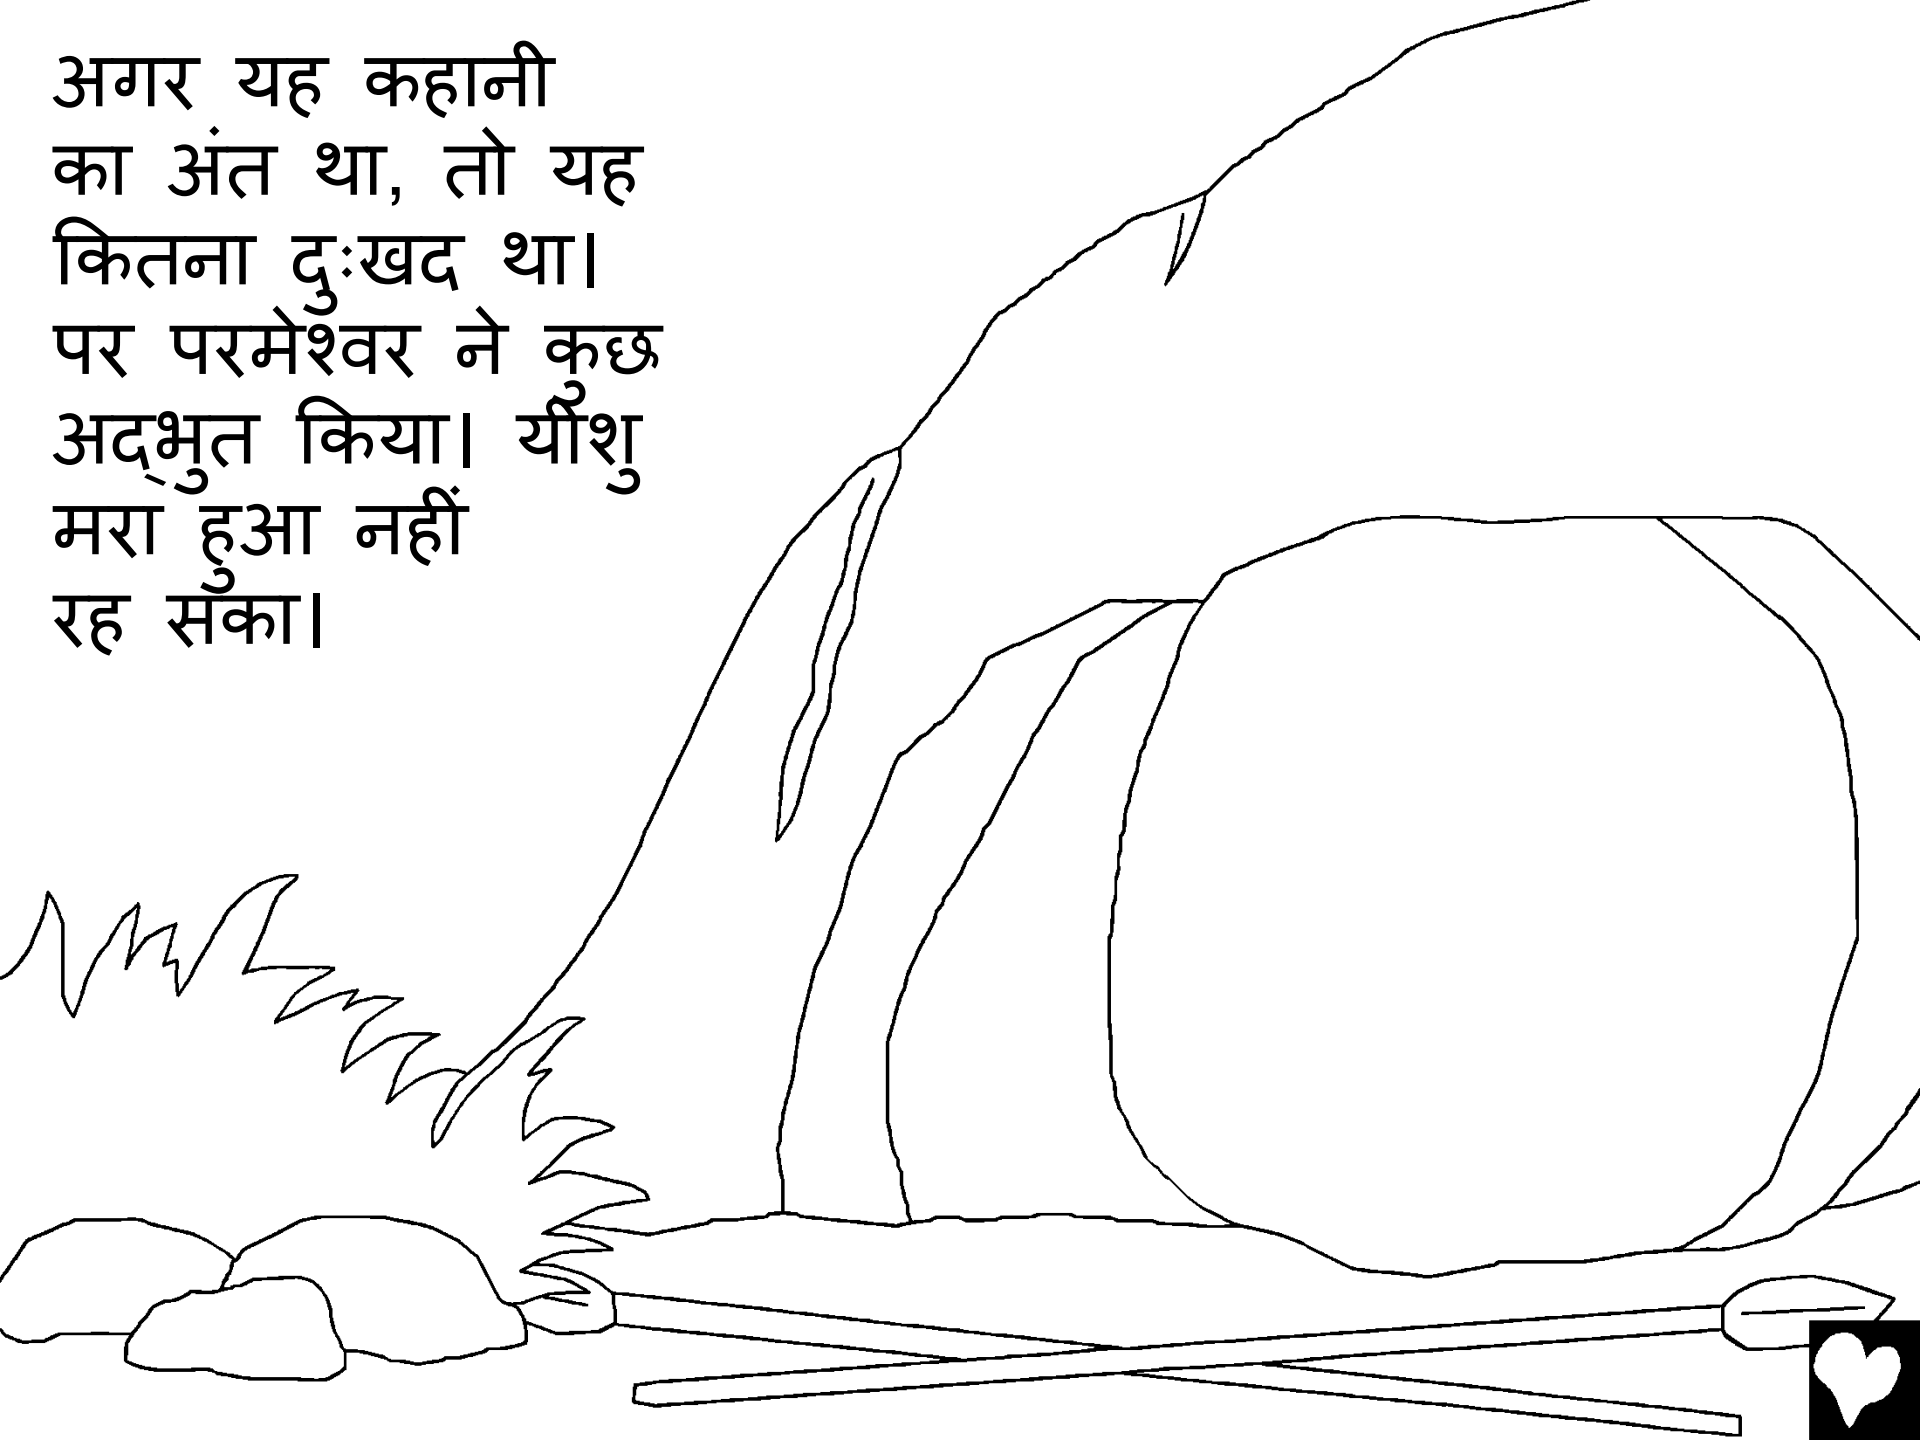 अगर यह कहानी
का अंत था, तो यह
कितना दुःखद था।
पर परमेश्वर ने कुछ
अद्‌भुत किया। यीशु
मरा हुआ नहीं
रह सका।